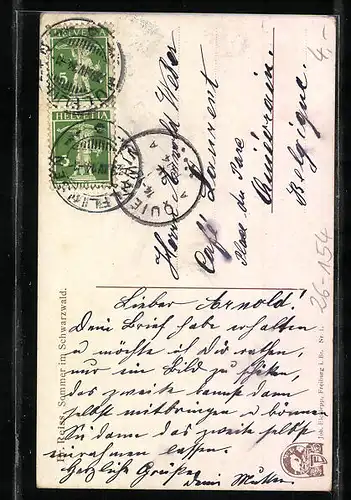 HELVETIA
5
HELVETIA
5
QUIÉVRAIN
Herrn Arnold Weber
Café Laurent
Place du Parc
Quiévrain.
Belgique.
4,-
26-154
Reiss, Sommer im Schwarzwald.
Freiburg i. Br. Nr. 1.
Lieber Arnold!
Dein Brief habe erhalten
u möchte ich Dir rathen,
nur ein Bild zu schicken,
das zweite kannst dann
selbst mitbringen u können
Sie dann das zweite selbst
einrahmen lassen.
Herzliche Grüsse
deine Mutter.